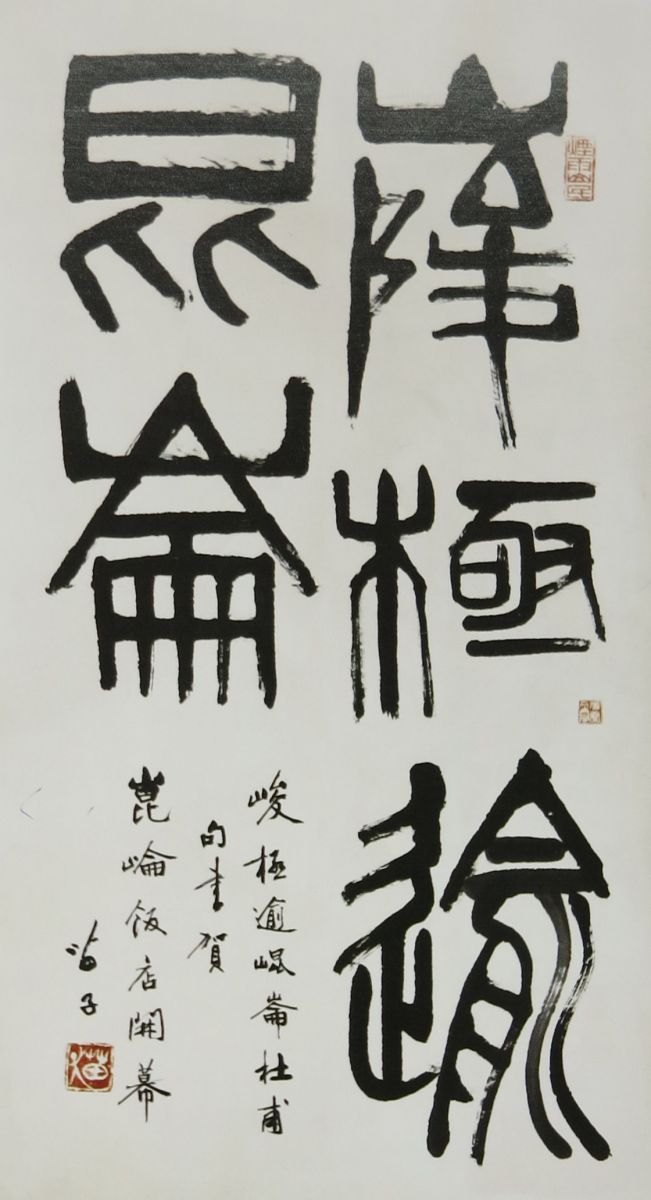 峻極逾
昆崙
峻極逾崐崙杜甫
句書賀
崑崘飯店開幕
苗子
苗